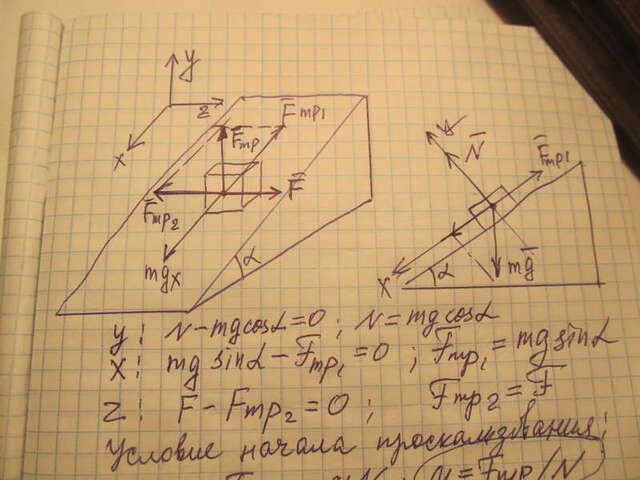 y
z
x
F̅тр1
F̅тр
F̅
F̅тр2
mgx
α
y
N̅
F̅тр1
x
α
mg̅
y: N-mgcosα=0; N=mgcosα
x: mg sinα-F̅тр1=0; F̅тр1=mg sinα
z: F-Fтр2=0; Fтр2=F
Условие начала проскальзывания:
μ=Fтр/N